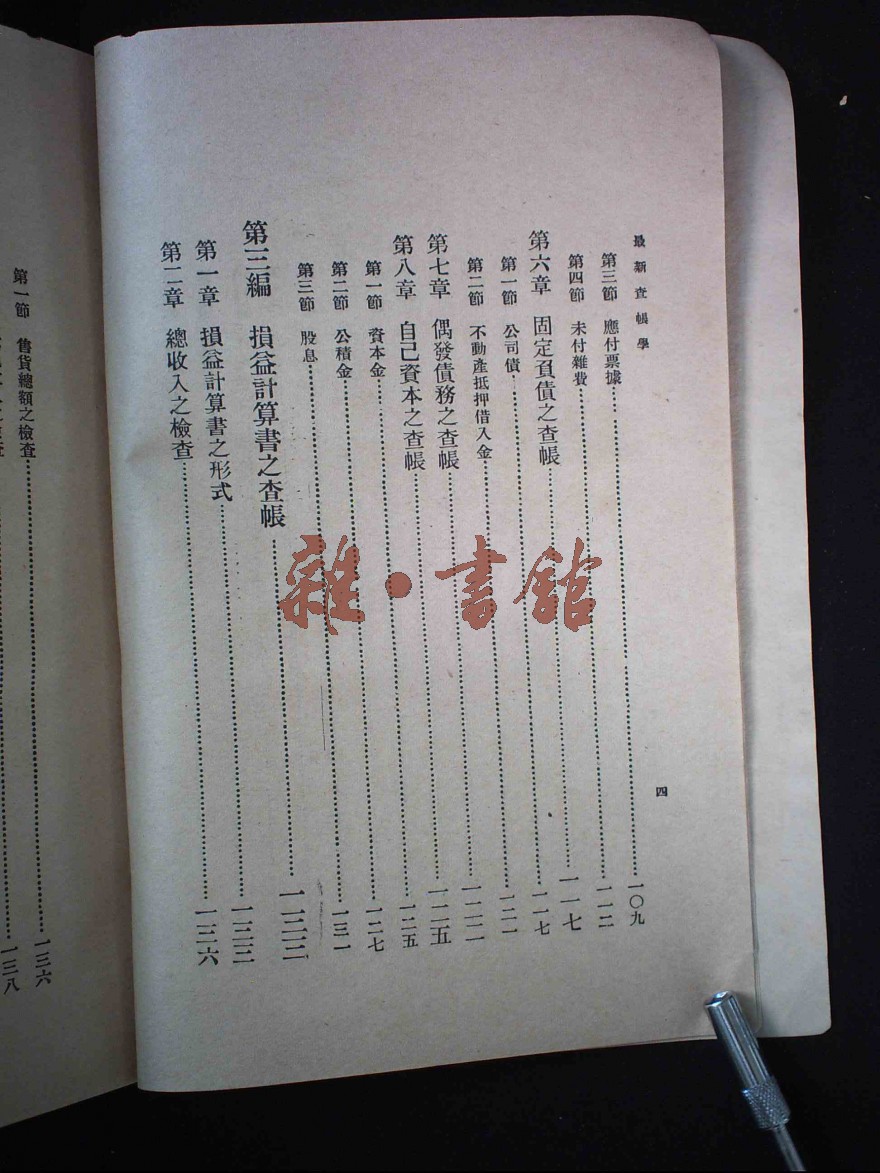 最新查帳學 四
第三節 應付票據……一〇九
第四節 未付雜費……一一二
第六章 固定負債之查帳……一一七
第一節 公司債……一一七
第二節 不動產抵押借入金……一二一
第七章 偶發債務之查帳……一二二
第八章 自己資本之查帳……一二五
第一節 資本金……一二五
第二節 公積金……一二七
第三節 股息……一三一
第三編 損益計算書之查帳……一三三
第一章 損益計算書之形式……一三三
第二章 總收入之檢查……一三六
第一節 售貨總額之檢查……一三六
一三八
雜·書館